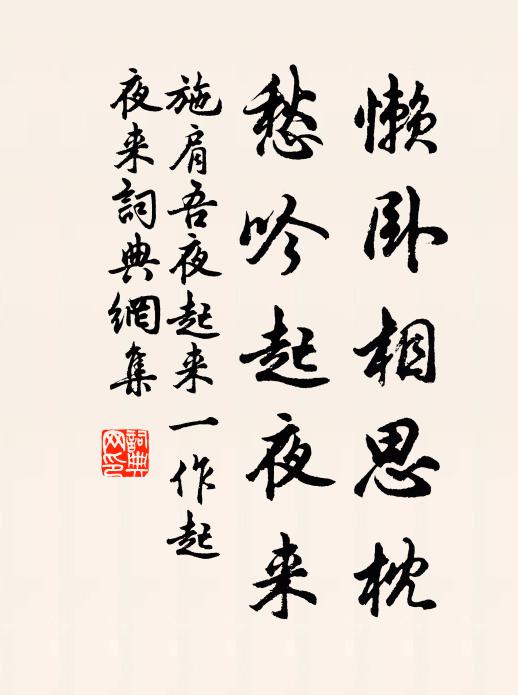 懒卧相思枕
愁吟起夜来
施肩吾夜起来一作起
夜来詞典網集
詞典
网印